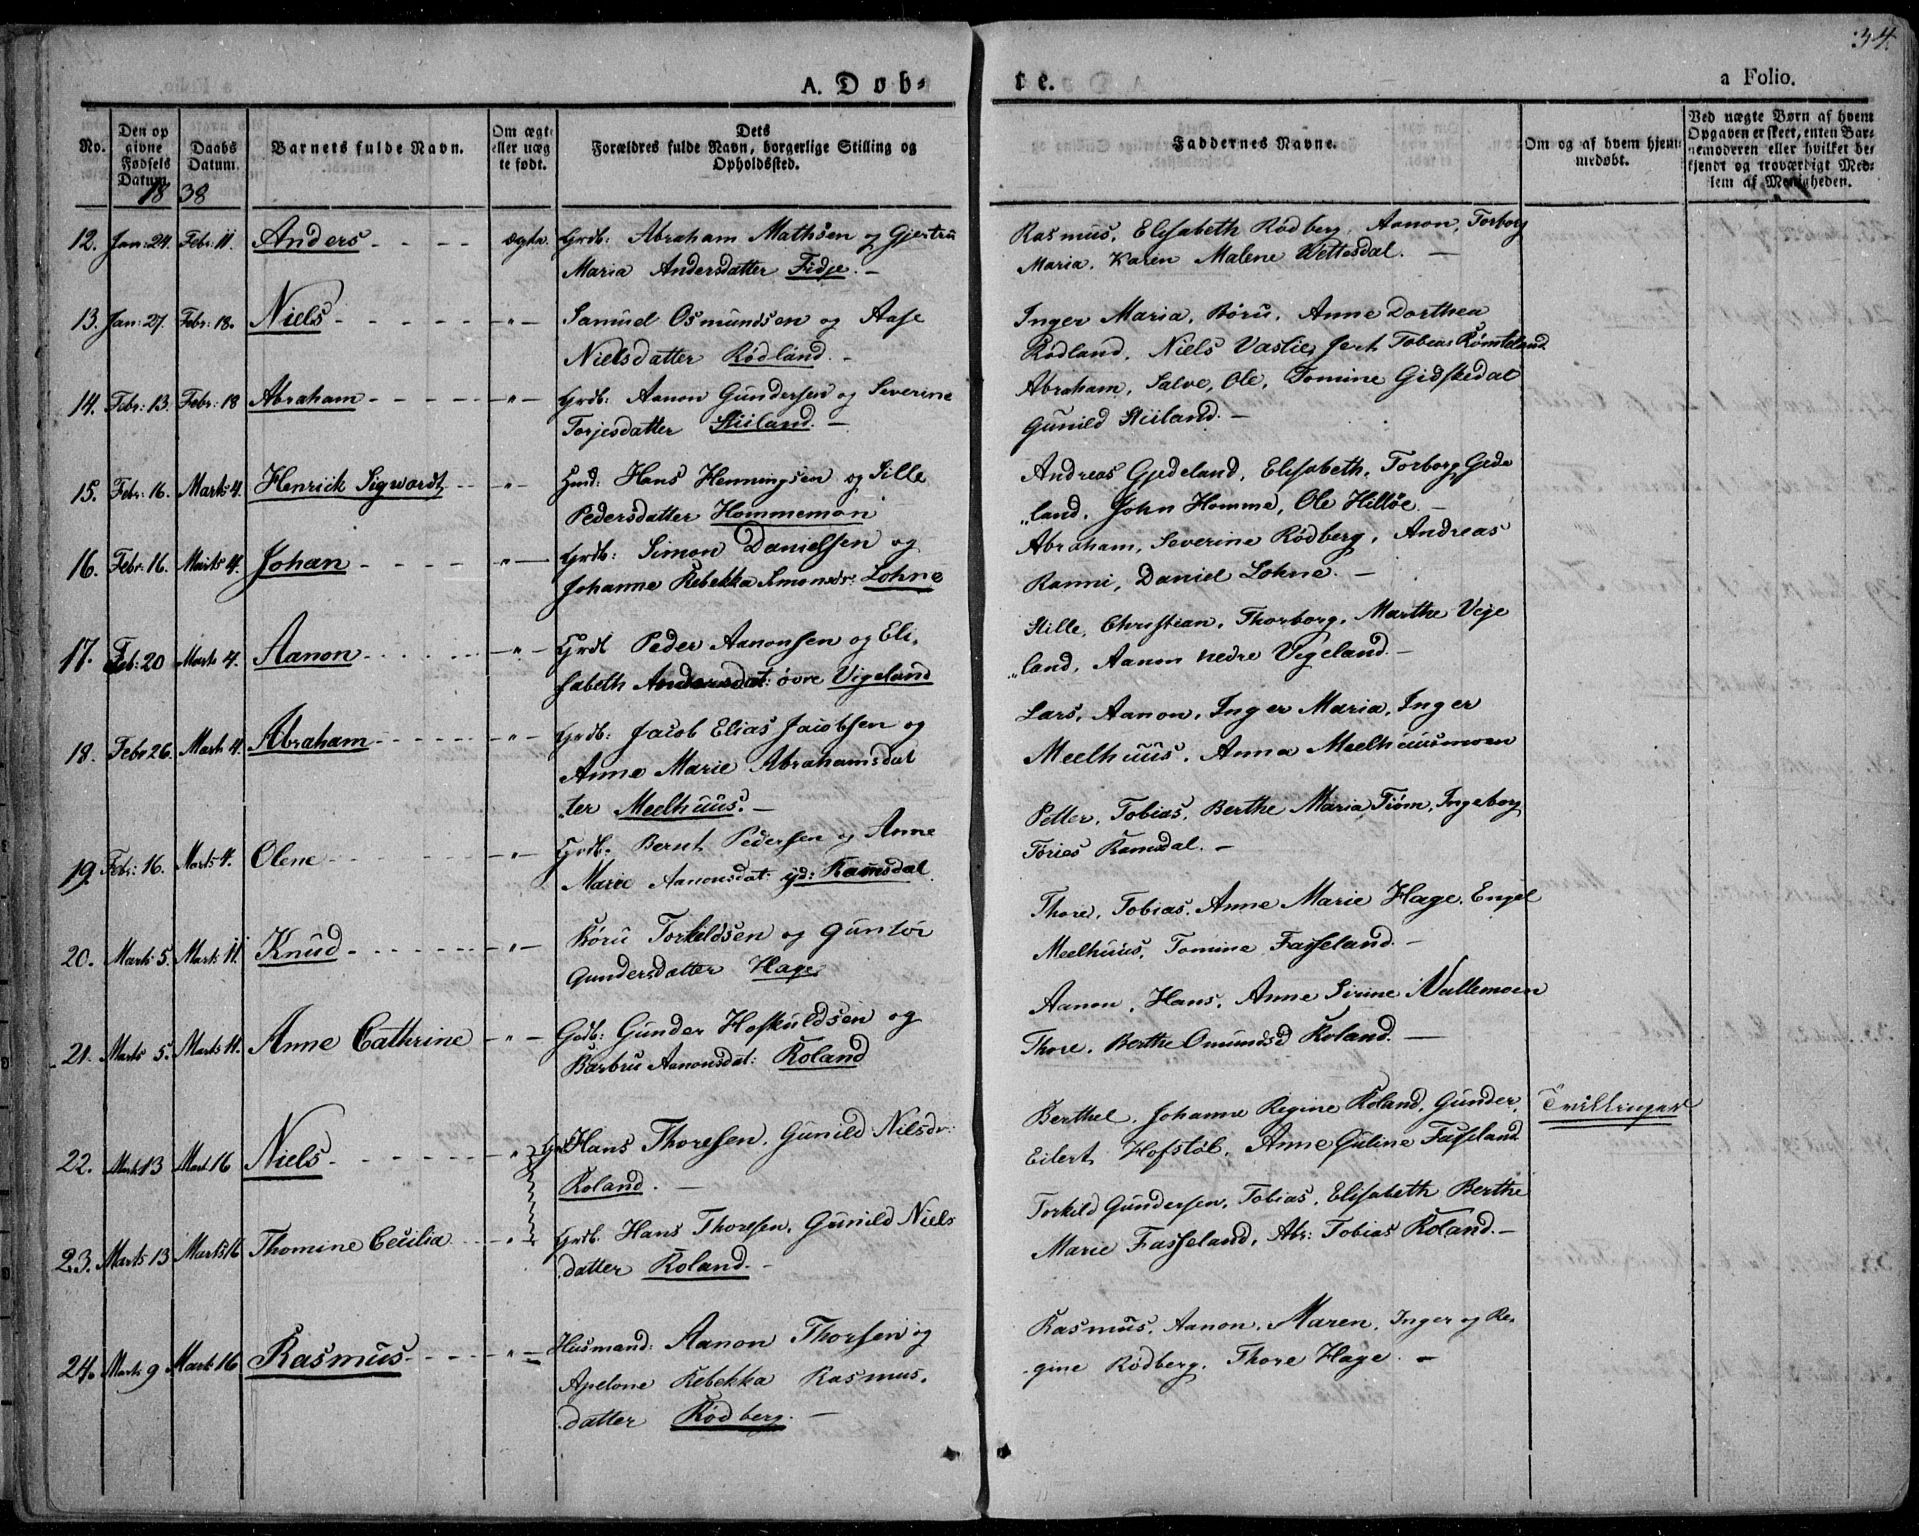 34.
A. Døb-
te.
a Folio.
No.
Den op
givne
Fødsels
Datum.
Daabs
Datum.
Barnets fulde Navn.
Om ægte
eller uæg
te født.
Dets
Forældres fulde Navn, borgerlige Stilling og
Opholdssted.
Faddernes Navne.
Om og af hvem hjem-
medøbt.
Ved uægte Børn af hvem
Opgaven er skeet, enten Bar-
nemoderen eller hvilket be-
kjendt og troværdigt Med-
lem af Menigheden.
18 38
12. Jan: 24. Febr: 11. Anders ægte. Grdb: Abraham Mathsen og Gjertru
Maria Andersdatter Fidje.
Rasmus, Elisabeth Rödberg, Aanon, Torborg
Maria, Karen Malene Wettesdal.
13. Jan: 27. Febr: 18. Niels -"- Samuel Osmundsen og Aase
Nielsdatter Rödland.
Inger Maria, Böru, Anne Dorthea
Rödland, Niels Tobias
14. Febr: 13. Febr: 18 Abraham -"- Grdb: Aanon Gundersen og Severine
Torjesdatter Stiland.
Abraham, Salve, Ole, Tomine Gidskedal
Gunild Stiland.
15. Febr: 16. Marts 4. Henrick Sigwardt -"- Hans Henningsen og Sille
Pedersdatter Hommemon
Andreas Gjedeland, Elisabeth, Torborg Gede
"land, John Homme, Ole Hillöe
16. Febr: 16. Marts 4. Johan -"- Grdb: Simon Danielsen og
Johanne Rebekka Simonsdr: Lohne
Abraham, Severine Rödberg, Andreas
Ranni, Daniel Lohne.
17. Feb: 20 Marts 4. Aanon -"- Grdb Peder Aanonsen og Eli,
sabeth Andersdat: övre Vigeland
Stille, Christian, Thorborg, Marthe Vige
"land, Aanon nedre Vigeland.
18. Febr 26. Marts 4. Abraham -"- Grdb: Jacob Elias Jacobsen og
Anne Marie Abrahamsdat
"ter Meelhuus.
Lars, Aanon, Inger Maria, Inger
Meelhuus, Anna Meelhuusmoen
19. Febr: 16. Marts 4. Olene -"- Grdb: Bernt Pedersen og Anne
Marie Aanonsdat: yd: Ramsdal
Petter, Tobias, Berthe Maria Tiöm, Ingeborg
Tories Ramsdal.
20. Marts 5. Marts 11. Knud -"- Böru Torkildsen og Guntor
Gundersdatter Hage
Thore, Tobias, Anne Marie Hage, Engel
Meelhuus, Tomine Fasseland.
21. Marts 5. Marts 11. Anne Cathrine -"- Gdb: Gunder Hofskuldsen og
Barbru Aanonsdat: Roland
Aanon, Hans, Anne Sirine Vallemoen
Thore, Berthe Omundsd Roland.
22. Marts 13 Marts 16 Niels -"- Grd Hans Thoresen, Gunild Nilsdr:
Roland.
Berthel, Johanne Regine Roland, Gunder,
Eilert Hofstöl, Anne Guline Fasseland
Tvillinger
23. Marts 13 Marts 16 Thomine Cecilia -"- Grdb. Hans Thoresen, Gunild Niels
datter Roland.
Torkild Gundersen, Tobias, Elisabeth Berthe
Marie Fasseland, Abr: Tobias Roland.
24. Marts 9 Marts 16 Rasmus -"- Husmand: Aanon Thorsen og
Apelone Rebekka Rasmus,
datter Rödberg.
Rasmus, Aanon, Maren, Inger og Re,
gine Rödberg, Thore Hage.